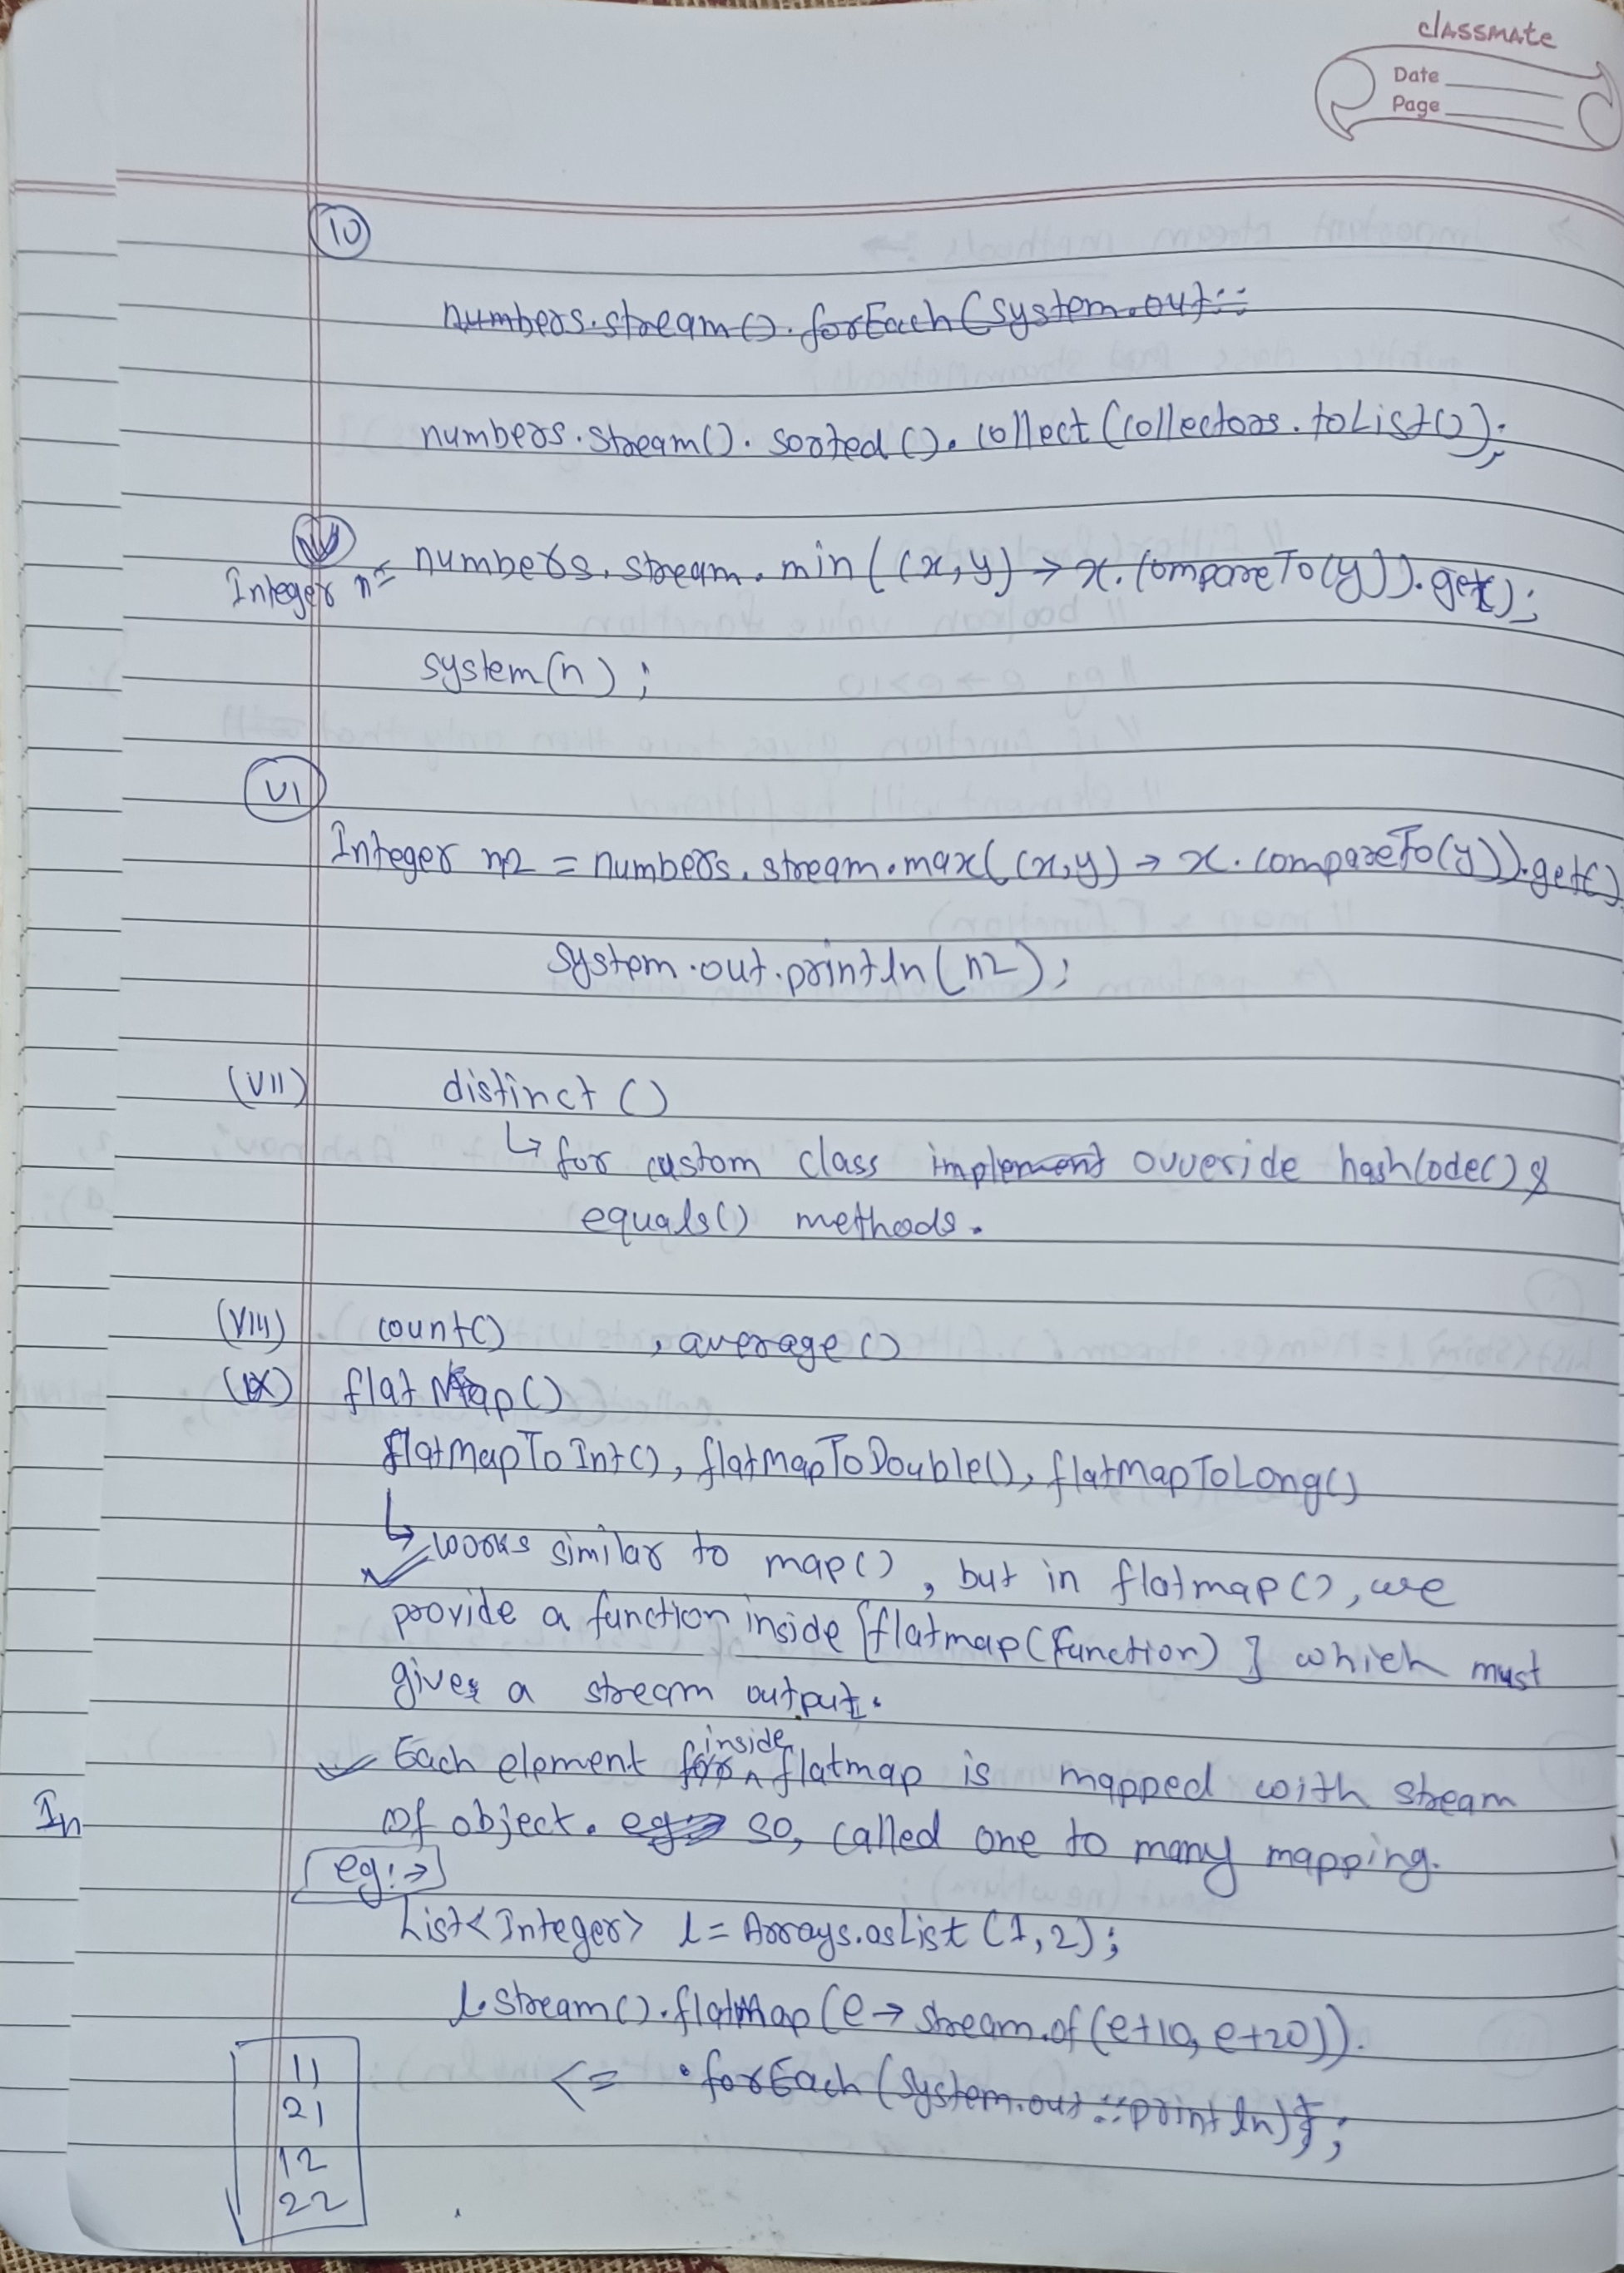 classmate
Date
Page
10
numbers.stream().forEach(system.out::
numbers.stream().sorted().collect(collectors.toList());
Integer n = numbers.stream.min((x,y) → x.compareTo(y)).get();
system(n);
VI
Integer n2 = numbers.stream.max((x,y) → x.compareTo(y)).get()
system.out.println(n2);
(VII) distinct()
↳ for custom class implement ovveride hashCode() &
equals() methods.
(VIII) count() , average()
(IX) flatMap()
flatMapToInt(), flatMapToDouble(), flatmapToLong()
↳ works similar to map(), but in flatmap(), we
provide a function inside [flatmap(Function)] which must
gives a stream output.
Each element for inside flatmap is mapped with stream
of object. eg so, called one to many mapping.
In
eg:→
List<Integer> l = Arrays.asList(1,2);
l.stream().flatMap(e → stream.of(e+10, e+20)).
<= .forEach(system.out::println)};
11
21
12
22